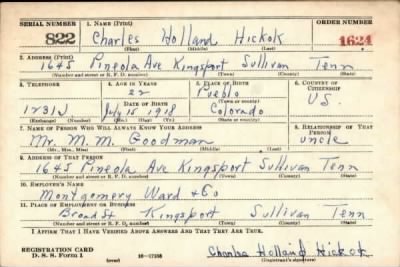 SERIAL NUMBER
1. NAME (Print)
ORDER NUMBER
822
Charles Holland Hickok
1624
(First) (Middle) (Last)
2. ADDRESS (Print)
1645 Pineola Ave Kingsport Sullivan Tenn
(Number and street or R. F. D. number) (Town) (County) (State)
3. TELEPHONE
4. AGE IN YEARS
5. PLACE OF BIRTH
6. COUNTRY OF CITIZENSHIP
22
Pueblo
(Town or county)
1231J
DATE OF BIRTH
July 15 1918
Colorado
U.S.
(Exchange) (Number)
(Mo.) (Day) (Yr.)
(State or country)
7. NAME OF PERSON WHO WILL ALWAYS KNOW YOUR ADDRESS
8. RELATIONSHIP OF THAT PERSON
Mr. M. M. Goodman
uncle
(Mr., Mrs., Miss) (First) (Middle) (Last)
9. ADDRESS OF THAT PERSON
1645 Pineola Ave Kingsport Sullivan Tenn
(Number and street or R. F. D. number) (Town) (County) (State)
10. EMPLOYER'S NAME
Montgomery Ward & Co
11. PLACE OF EMPLOYMENT OR BUSINESS
Broad St Kingsport Sullivan Tenn
(Number and street or R. F. D. number) (Town) (County) (State)
I AFFIRM THAT I HAVE VERIFIED ABOVE ANSWERS AND THAT THEY ARE TRUE.
REGISTRATION CARD
D. S. S. Form 1
(over)
Charles Holland Hickok
(Registrant's signature)